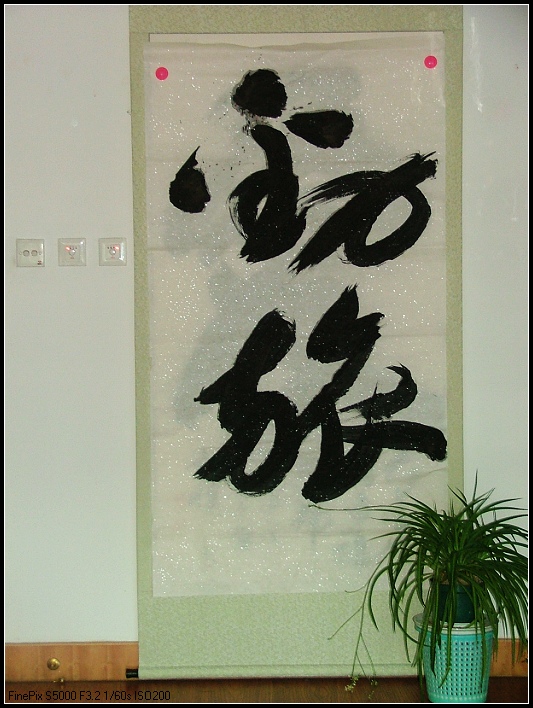 劲
旅
FinePix S5000 F3.2 1/60s ISO200